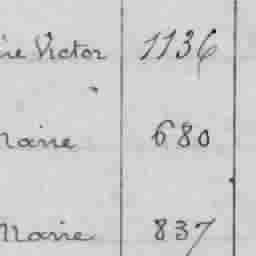 ie Victor 1136
Marie 680
Marie 837